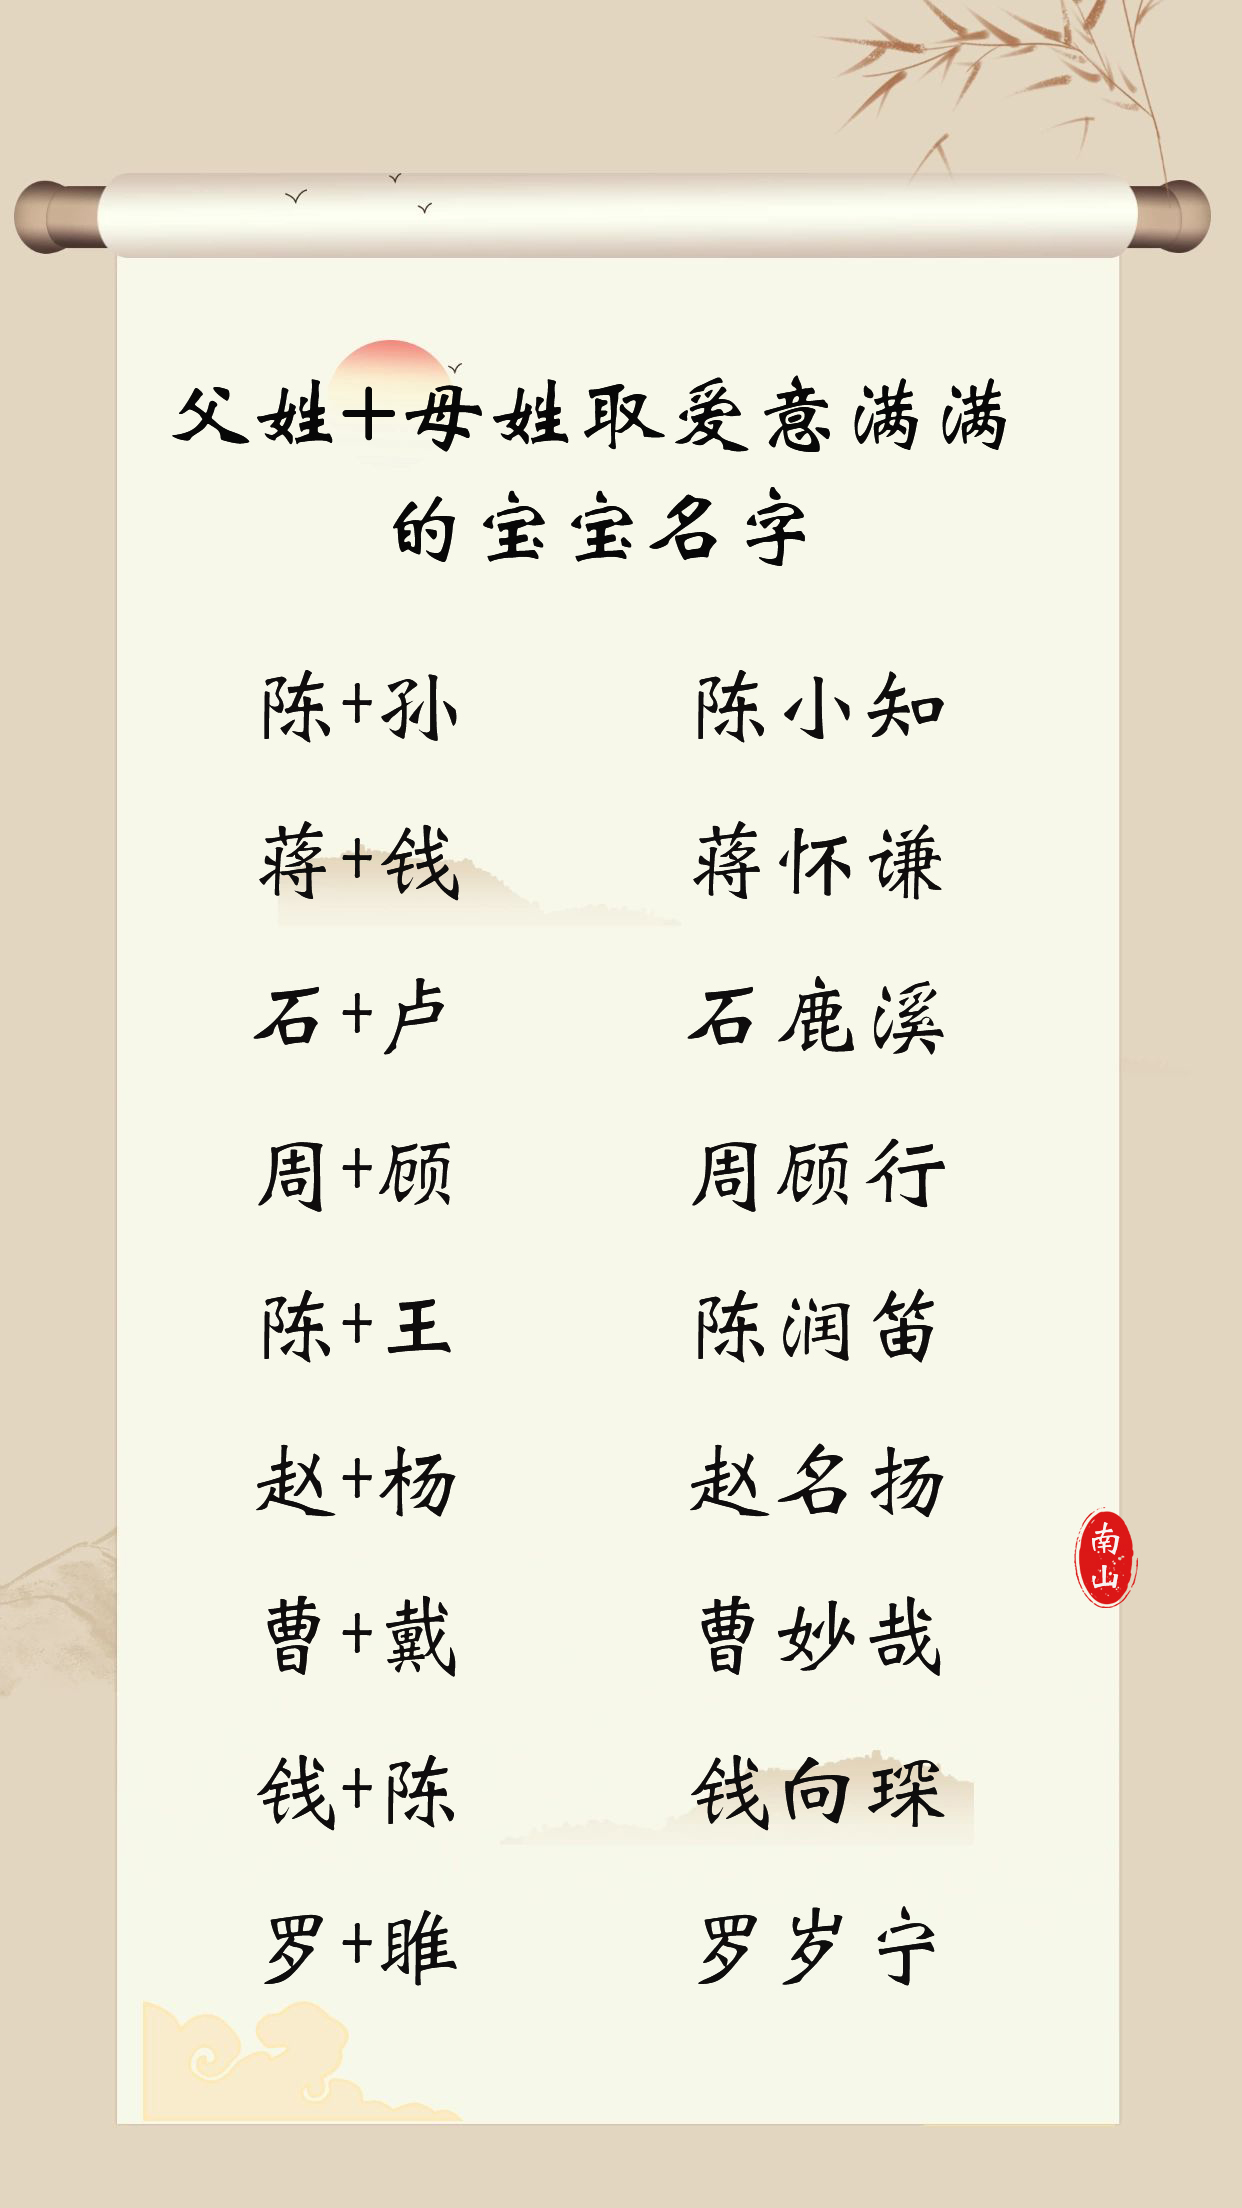 父姓+母姓取爱意满满
的宝宝名字
陈+孙 陈小知
蒋+钱 蒋怀谦
石+卢 石鹿溪
周+顾 周顾行
陈+王 陈润笛
赵+杨 赵名扬
曹+戴 曹妙哉
钱+陈 钱向琛
罗+雎 罗岁宁
南山